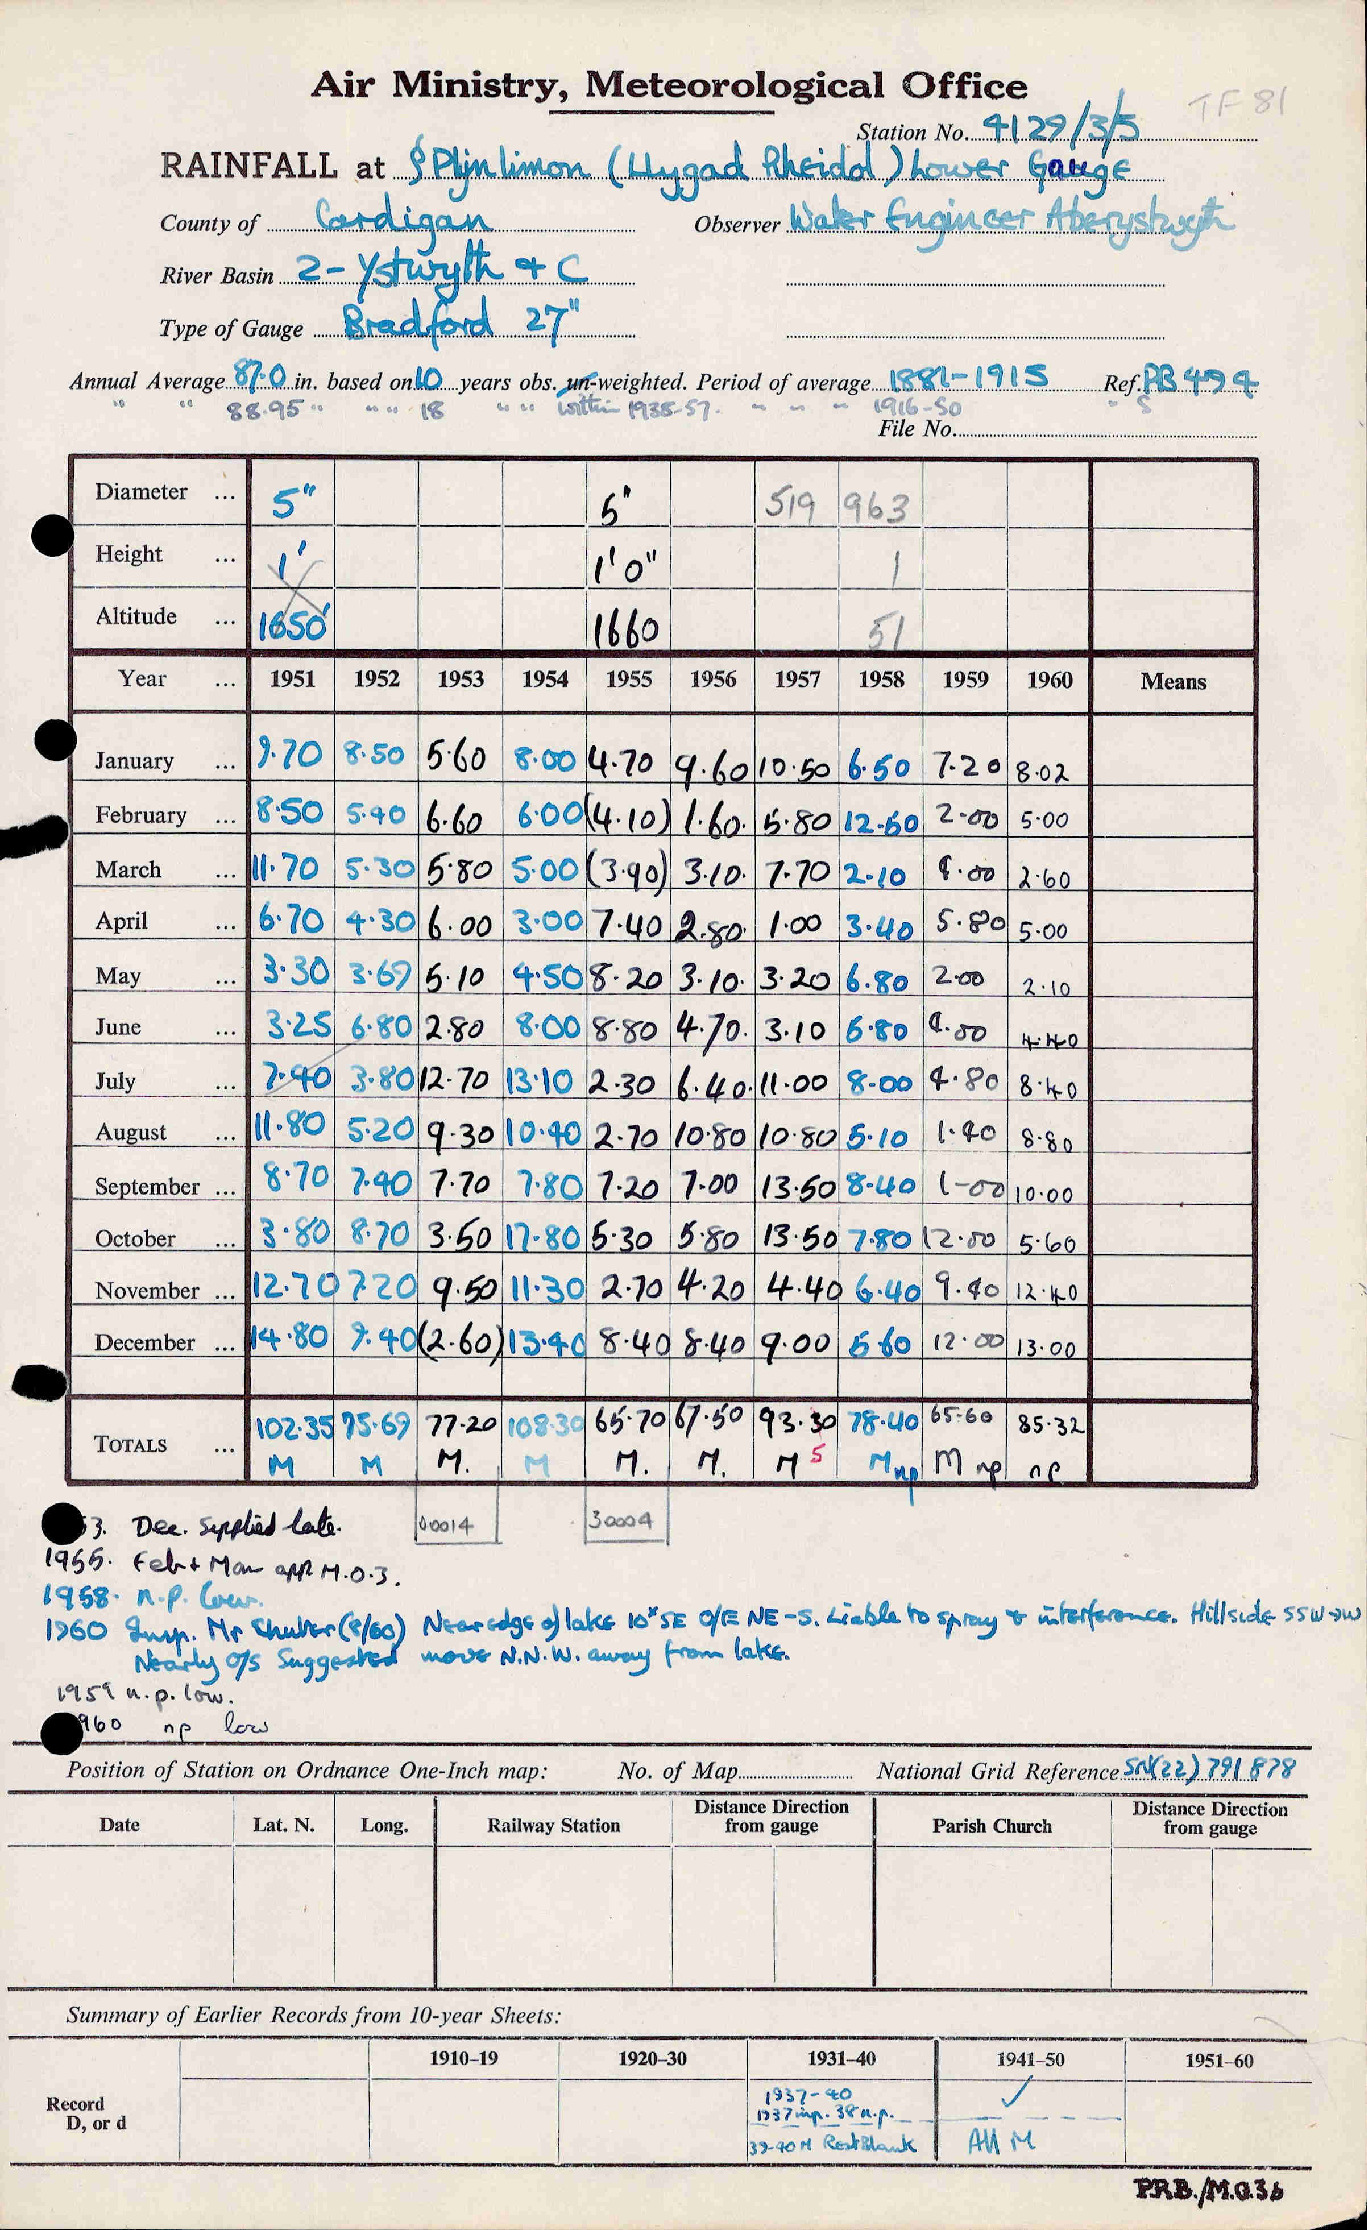 Air Ministry, Meteorological Office
TF 81
Station No. 4129/3/5
RAINFALL at Plynlimon (Llygad Rheidol) Lower Gauge
County of Cardigan Observer Water Engineer Aberystwyth
River Basin 2- Ystwyth + C
Type of Gauge Bradford 27"
Annual Average 87.0 in. based on 10 years obs. un-weighted. Period of average 1881-1915 Ref. RB 494
" " 88.95 " " " 18 " " within 1938-57. " " " 1916-50 " S
File No.
Diameter ... 5" 5" 519 963
Height ... 1' 1'0" 1
Altitude ... 1650' 1660 51
Year ... 1951 1952 1953 1954 1955 1956 1957 1958 1959 1960 Means
January ... 9.70 8.50 5.60 8.00 4.70 9.60 10.50 6.50 7.20 8.02
February ... 8.50 5.40 6.60 6.00 (4.10) 1.60. 5.80 12.60 2.00 5.00
March ... 11.70 5.30 5.80 5.00 (3.90) 3.10. 7.70 2.10 4.00 2.60
April ... 6.70 4.30 6.00 3.00 7.40 2.80. 1.00 3.40 5.80 5.00
May ... 3.30 3.69 5.10 4.50 8.20 3.10. 3.20 6.80 2.00 2.10
June ... 3.25 6.80 2.80 8.00 8.80 4.70. 3.10 6.80 4.00 4.40
July ... 7.40 3.80 12.70 13.10 2.30 6.40. 11.00 8.00 4.80 8.40
August ... 11.80 5.20 9.30 10.40 2.70 10.80 10.80 5.10 1.40 8.80
September ... 8.70 7.40 7.70 7.80 7.20 7.00 13.50 8.40 1.00 10.00
October ... 3.80 8.70 3.50 17.80 5.30 5.80 13.50 7.80 12.00 5.60
November ... 12.70 7.20 9.50 11.30 2.70 4.20 4.40 6.40 9.40 12.40
December ... 14.80 9.40 (2.60) 13.40 8.40 8.40 9.00 5.60 12.00 13.00
TOTALS ... 102.35 75.69 77.20 108.30 65.70 67.50 93.30 78.40 65.60 85.32
M M M. M M. M. M 5 M np M np np
00014 30004
3. Dec. supplied late.
1955. Feb + Mar app M.O.3.
1958. n.p. low.
1960 Insp. Mr Shulter (8/60) Near edge of lake 10x SE O/E NE-S. Liable to spray & interference. Hillside SSW→W
Nearly o/s Suggested move N.N.W. away from lake.
1959 n.p. low.
960 np low
Position of Station on Ordnance One-Inch map: No. of Map National Grid Reference SN(22) 791 878
Date Lat. N. Long. Railway Station Distance Direction from gauge Parish Church Distance Direction from gauge
Summary of Earlier Records from 10-year Sheets:
1910–19 1920–30 1931–40 1941–50 1951–60
Record
D, or d
1937-40 ✓
1937 inp. 38 n.p.
39-40 M Rest Blank All M
P.R.B./M.O.3b